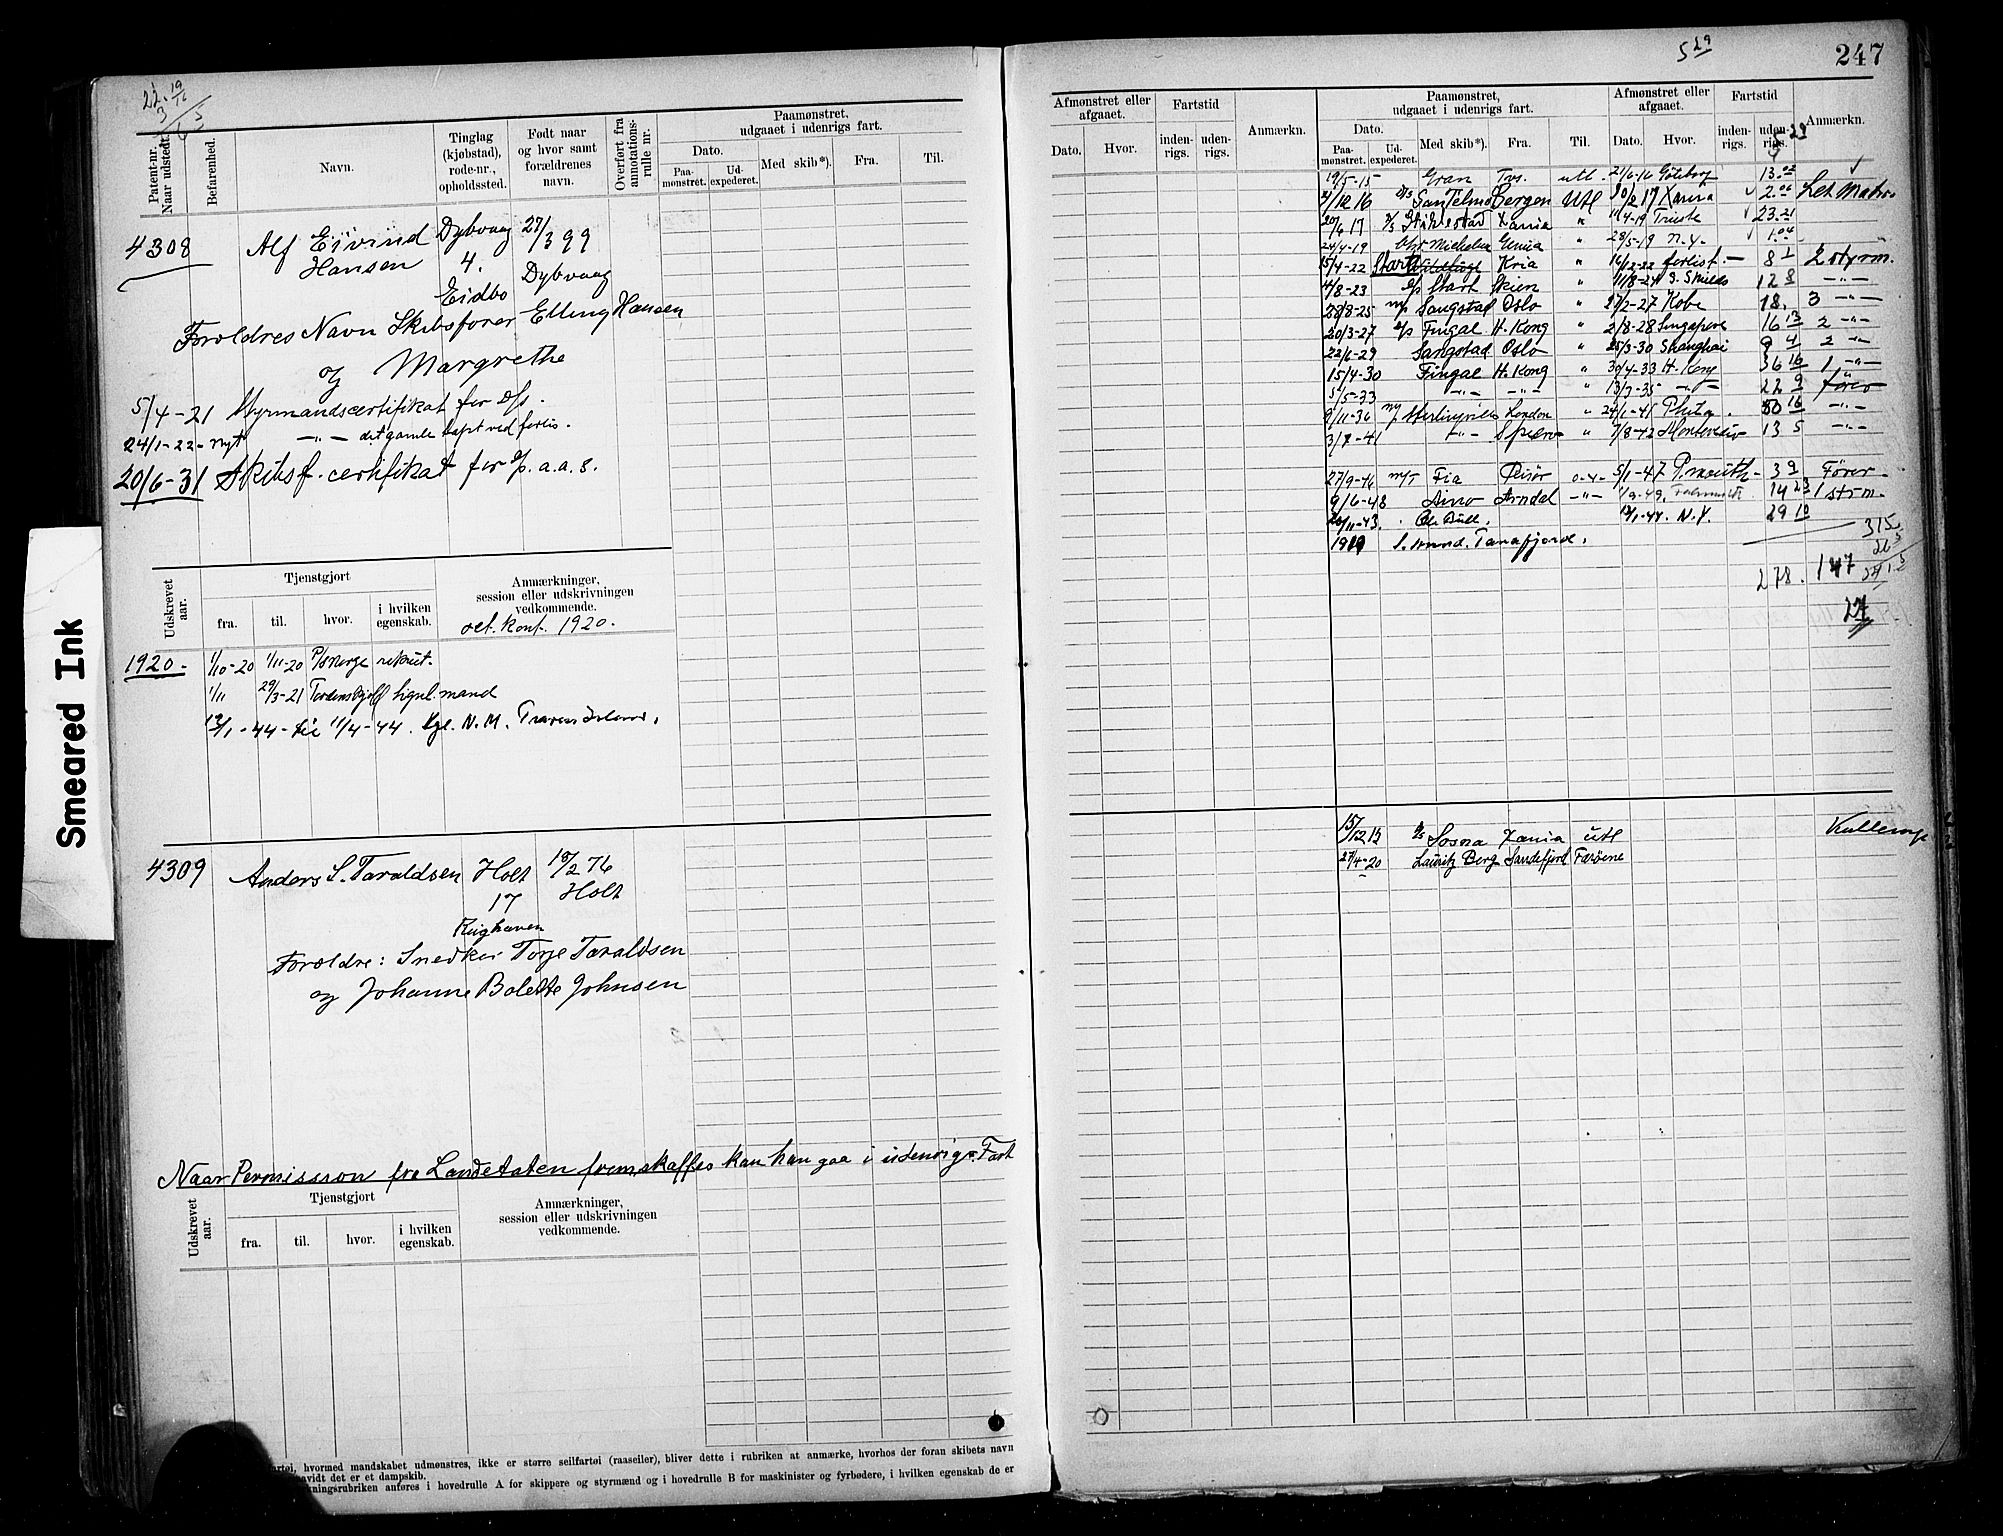 Smeared Ink
247
5 29
22. 19/16
Patent-nr. Naar udstedt.
Befarenhed.
Navn.
Tinglag (kjøbstad), rode-nr., opholdssted.
Født naar og hvor samt forældrenes navn.
Overført fra annotations-rulle nr.
Paamønstret, udgaaet i udenrigs fart.
Dato.
Paa-mønstret.
Ud-expederet.
Med skib*).
Fra.
Til.
4308 Alf Eivind Hansen
Dybvaag 4. Eidbo
27/3 99 Dybvaag
Foroldres Navn Skibsfører Elling Hansen
og Margrethe
5/4-21 Styrmandscertifikat for D/s.
24/1-22- nyt -"- det gamle tapt ved forlis.
20/6-31 Skibsf. certifikat for D/p. a.a.s.
Udskrevet aar.
Tjenstgjort
fra.
til.
hvor.
i hvilken egenskab.
Anmærkninger, session eller udskrivningen vedkommende.
1920.
1920. 1/10-20 1/11-20 P/s Norge rekrut.
1/11 29/3-21 Tordenskjold signl. mand
12/1-44- til 11/4-44. Kgl. N. M.
4309 Anders S. Taraldsen
Holt 17
18/2 76 Holt
Foroldre: Snedker Torje Taraldsen
og Johanne Bolette Johnsen
Naar Permission fra Landetaten fremskaffes kan han gaa i udenrigs Fart
Udskrevet aar.
Tjenstgjort
fra.
til.
hvor.
i hvilken egenskab.
Anmærkninger, session eller udskrivningen vedkommende.
hvormed mandskabet udmønstres, ikke er større seilfartøi (raaseiler), bliver dette i rubriken at anmærke, hvorhos der foran skibets navn
det er et dampskib.
anføres i hovedrulle A for skippere og styrmænd og i hovedrulle B for maskinister og fyrbødere, i hvilken egenskab de er
Afmønstret eller afgaaet.
Dato.
Hvor.
Fartstid
inden-rigs.
uden-rigs.
Anmærkn.
Paamønstret, udgaaet i udenrigs fart.
Dato.
Paa-mønstret.
Ud-expederet.
Med skib*).
Fra.
Til.
Afmønstret eller afgaaet.
Dato.
Hvor.
Fartstid
inden-rigs.
uden-rigs.
Anmærkn.
19/5-15 Gran Tvs. utl. 21/6-16 Göteborg 13.02
/12 16 D/s San Telmo Bergen Utl 10/2 17 Xania 2.06 Let Matr.
20/6 17 Xania " 11/4-19 Trieste 23.21
24/4-19 Chr Michelsen Genua " 28/5-19 N.Y. 1.04
15/4-22 Start Kria " 16/12-22 forlist - 8 1 2 styrm.
4/8-23 D/s Start Skien " 11/8-24 S. Shields 12 8 -"-
28/8-25 M/s Sangstad Oslo " 27/2-27 Kobe 18. 3 -"-
20/3-27 D/s Fingal H. Kong " 2/8-28 Singapore 16 13 2 -"-
22/6-29 Sangstad Oslo " 25/3-30 Shanghai 9 4 2 -"-
15/4-30 Fingal H. Kong " 30/4-33 H. Kong 36 16 1 -"-
5/5-33 -"- -"- " 13/3-35 -"- 22 9 fører
9/11-36 London " 24/1-41 Phila. 50 16 -"-
3/7-41 -"- " 7/8-42 Montevideo 13 5 -"-
27/9-46 M/T Fia Risör 5/1-47 3 9 Fører
9/6-48 Arno Arndal -"- 1/9-49. 14 23 1 strm.
20/11-43. Ole Bull. 12/1-44. N.Y. 29 10
Tanafjord.
315
278. 147
27
15/12 13 D/s Sosna Xania utl
27/4-20 Lauritz Berg Sandefjord Færöene